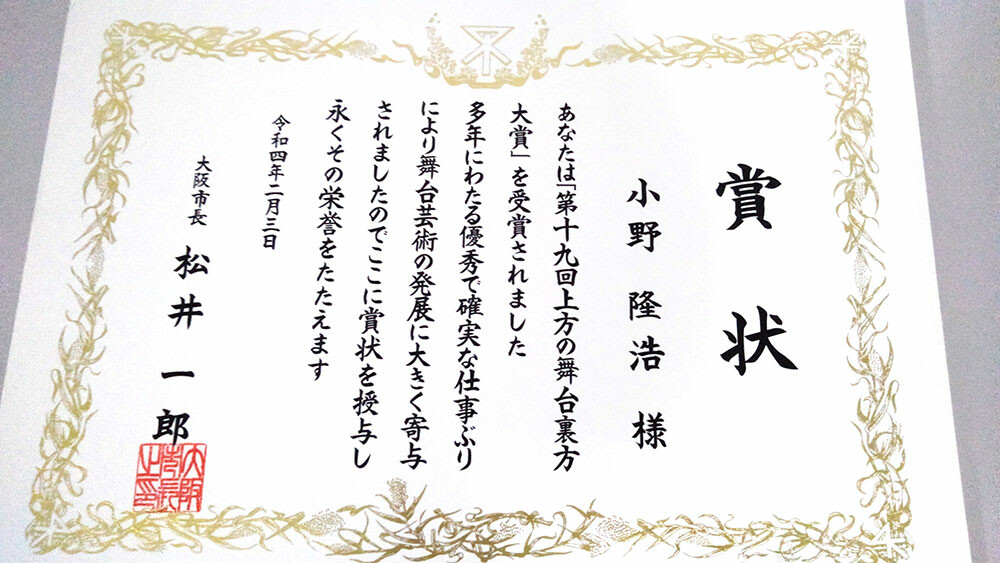 賞状
小野 隆浩 様
あなたは「第十九回上方の舞台裏方
大賞」を受賞されました
多年にわたる優秀で確実な仕事ぶり
により舞台芸術の発展に大きく寄与
されましたのでここに賞状を授与し
永くその栄誉をたたえます
令和四年二月三日
大阪市長 松井 一郎
大阪
市長
之印